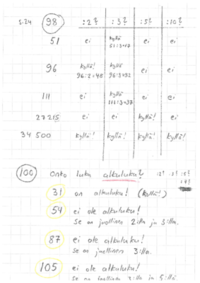 s.24 98 :2? :3? :5? :10?
51 ei kyllä! 51:3=17 ei ei
96 kyllä! 96:2=48 kyllä! 96:3=32 ei ei
111 ei kyllä! 111:3=37 ei ei
27215 ei ei kyllä! ei
34 500 kyllä! kyllä! kyllä! kyllä!
100 Onko luku alkuluku?
31 on alkuluku! (kyllä!)
54 ei ole alkuluku!
Se on jaollinen 2:lla ja 3:lla.
87 ei ole alkuluku!
Se on jaollinen 3:lla.
105 ei ole alkuluku!
Se on jaollinen 3:lla ja 5:llä